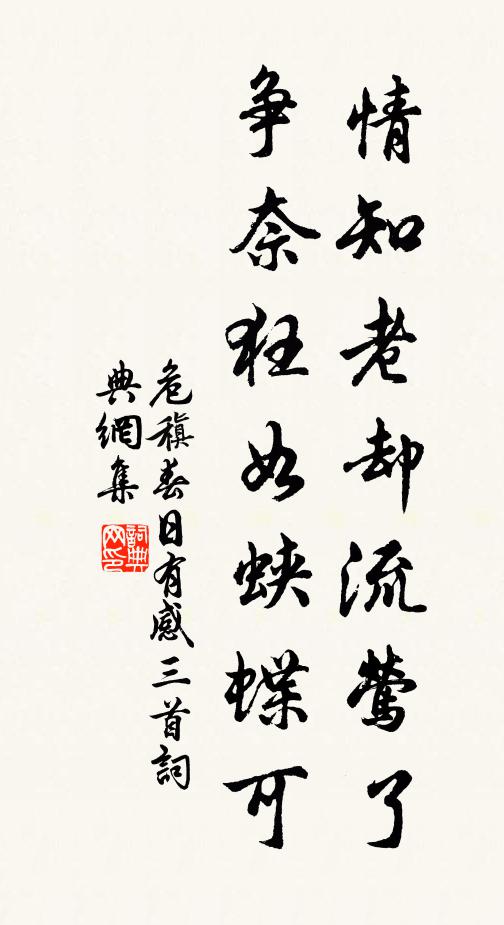 情知老却流莺了
争奈狂如蛱蝶可
危稹春日有感三首詞
典網集
詞典网印